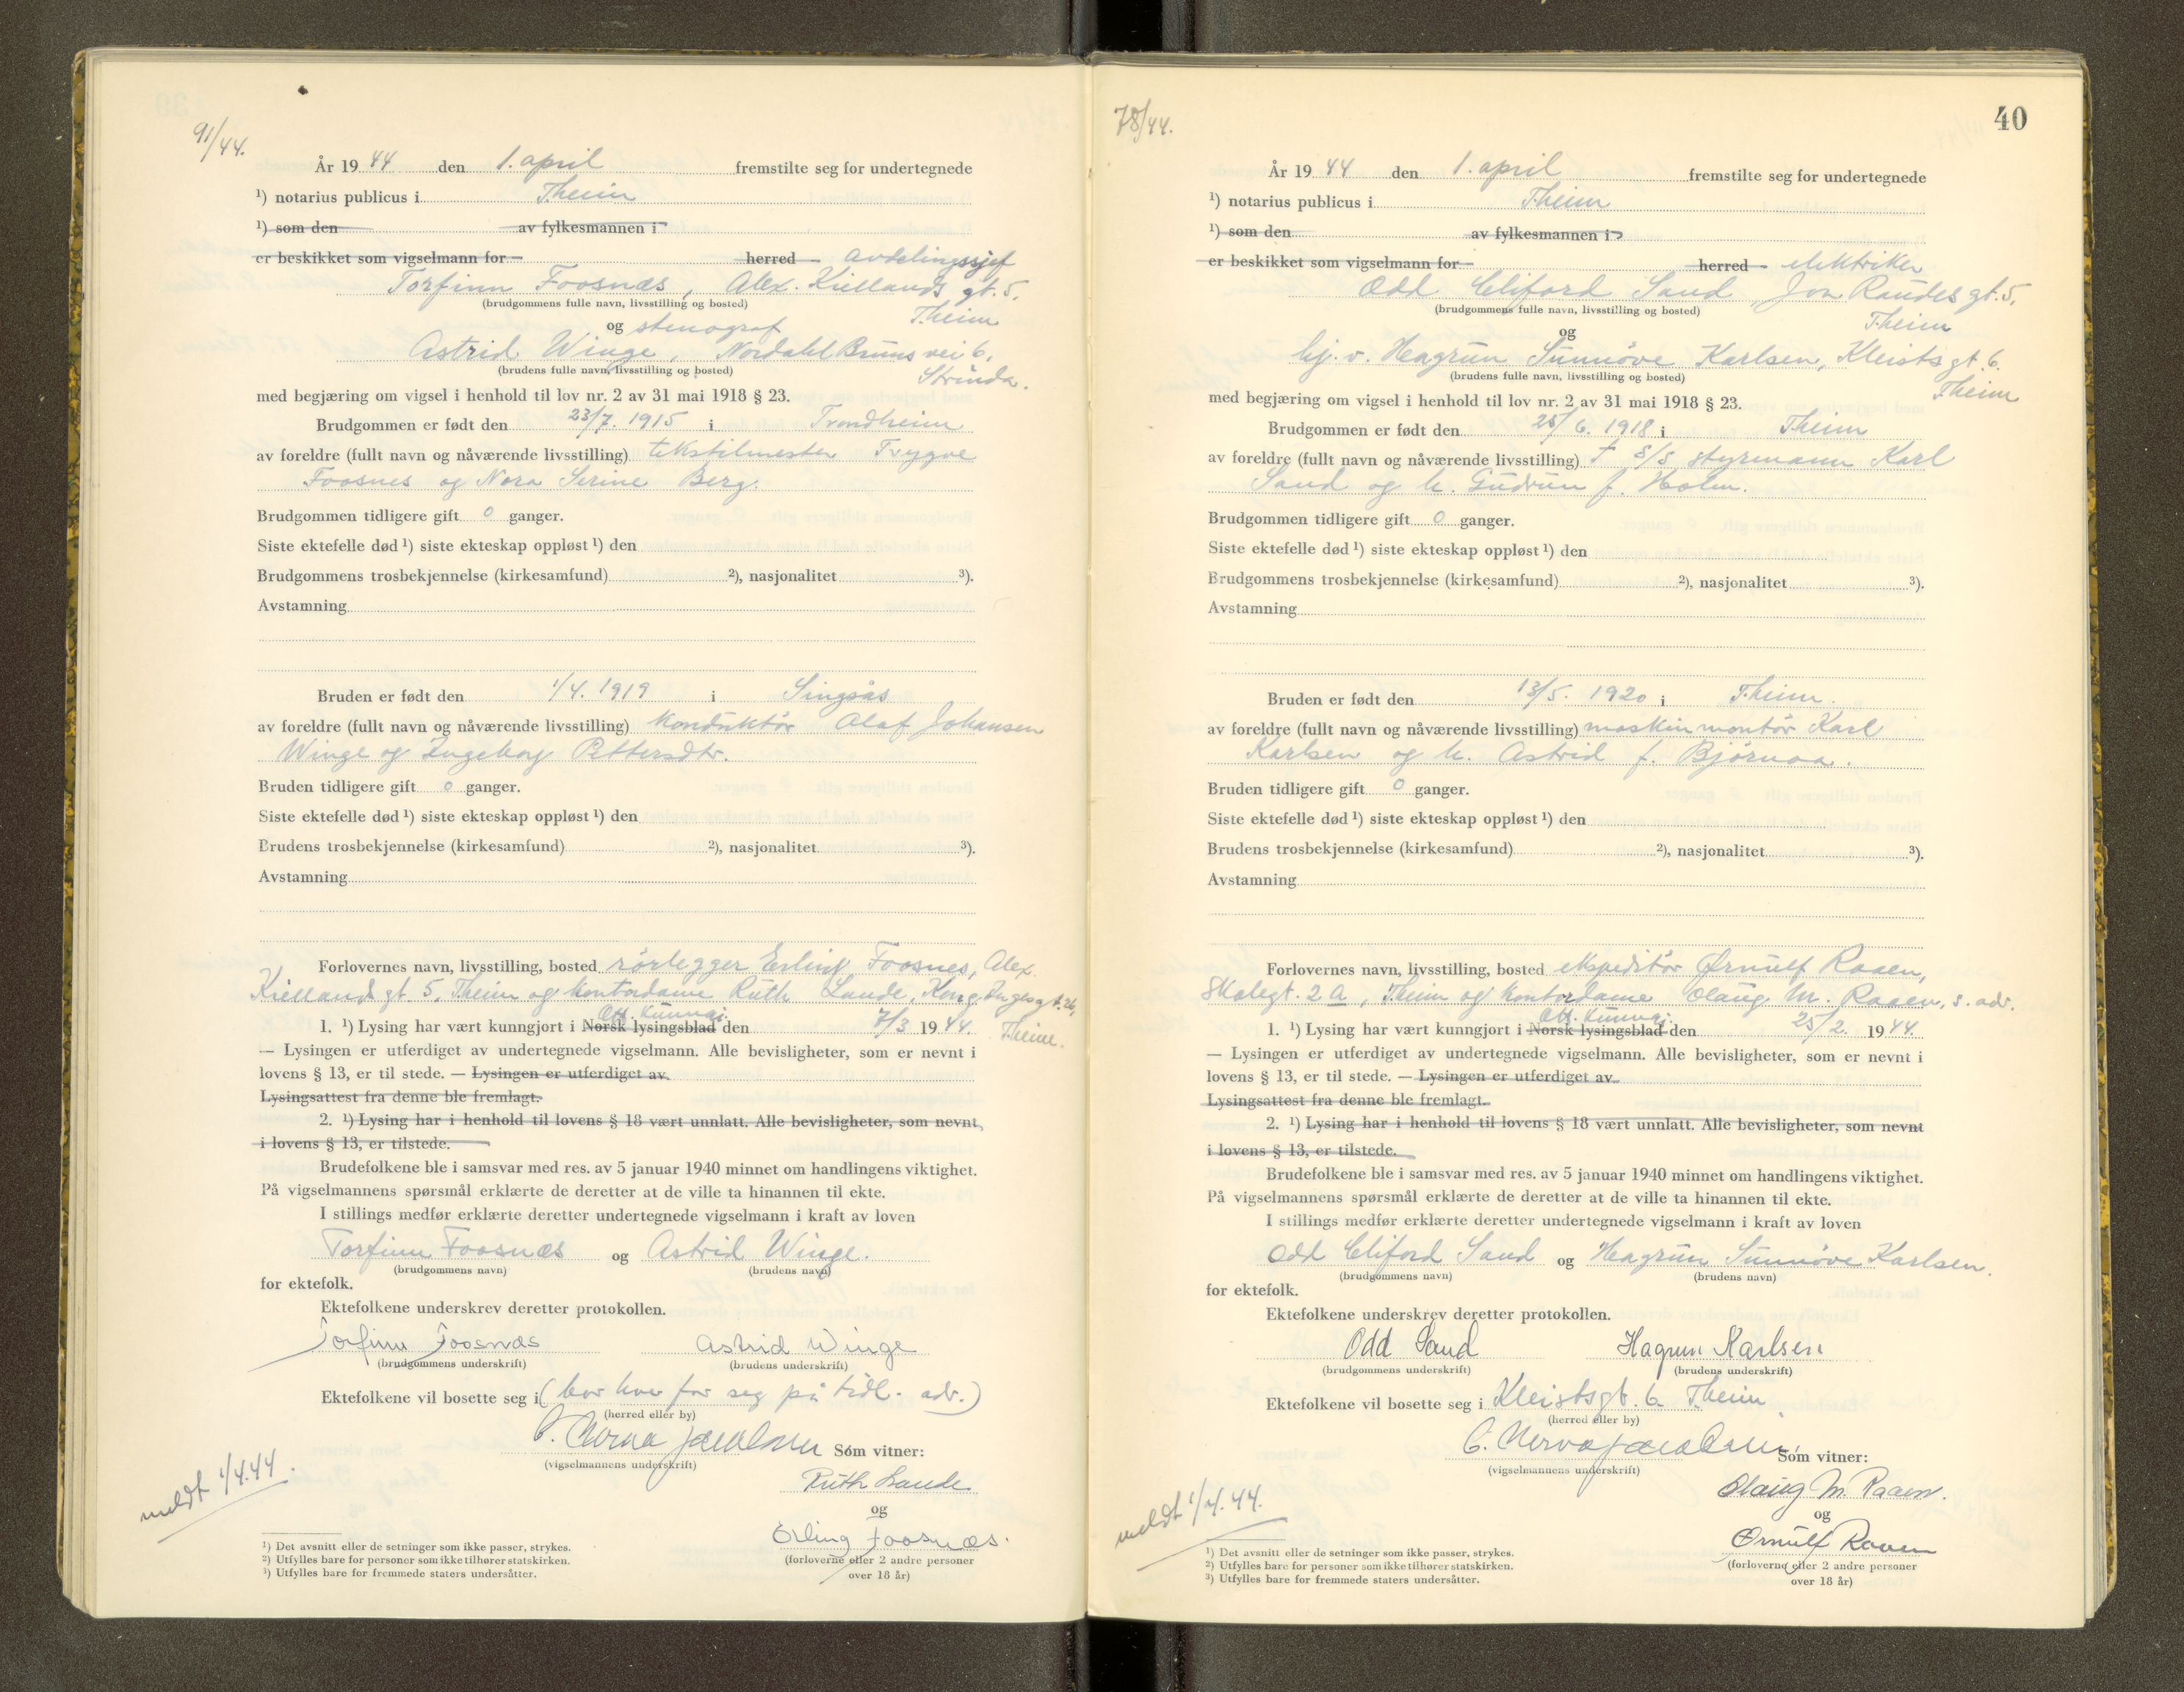 91/44.
År 19 44 den 1. april fremstilte seg for undertegnede
¹) notarius publicus i Theim
¹) som den av fylkesmannen i
er beskikket som vigselmann for herred avdelingssjef
Torfinn Foosnæs, Alex. Kiellands gt. 5,
(brudgommens fulle navn, livsstilling og bosted) Theim
og stenograf
Astrid Winge, Nordahl Bruns vei 6,
(brudens fulle navn, livsstilling og bosted) Strinda.
med begjæring om vigsel i henhold til lov nr. 2 av 31 mai 1918 § 23.
Brudgommen er født den 23/7. 1915 i Trondheim
av foreldre (fullt navn og nåværende livsstilling) tekstilmester Trygve
Foosnes og Nora Serine Berg.
Brudgommen tidligere gift 0 ganger.
Siste ektefelle død ¹) siste ekteskap oppløst ¹) den
Brudgommens trosbekjennelse (kirkesamfund) ²), nasjonalitet ³).
Avstamning
Bruden er født den 1/4. 1919 i Singsås
av foreldre (fullt navn og nåværende livsstilling) konduktør Olaf Johansen
Winge og Ingeborg Pettersdtr.
Bruden tidligere gift 0 ganger.
Siste ektefelle død ¹) siste ekteskap oppløst ¹) den
Brudens trosbekjennelse (kirkesamfund) ²), nasjonalitet ³).
Avstamning
Forlovernes navn, livsstilling, bosted rørlegger Erling Foosnes, Alex.
Kiellands gt. 5, Theim og kontordame Ruth Lande, Kong Inges gt. 26,
Off. kunngj.
1. ¹) Lysing har vært kunngjort i Norsk lysingsblad den 7/3 1944. Theim.
— Lysingen er utferdiget av undertegnede vigselmann. Alle bevisligheter, som er nevnt i
lovens § 13, er til stede. — Lysingen er utferdiget av
Lysingsattest fra denne ble fremlagt.
2. ¹) Lysing har i henhold til lovens § 18 vært unnlatt. Alle bevisligheter, som nevnt
i lovens § 13, er tilstede.
Brudefolkene ble i samsvar med res. av 5 januar 1940 minnet om handlingens viktighet.
På vigselmannens spørsmål erklærte de deretter at de ville ta hinannen til ekte.
I stillings medfør erklærte deretter undertegnede vigselmann i kraft av loven
Torfinn Foosnæs og Astrid Winge.
(brudgommens navn) (brudens navn)
for ektefolk.
Ektefolkene underskrev deretter protokollen.
Torfinn Foosnæs Astrid Winge
(brudgommens underskrift) (brudens underskrift)
Ektefolkene vil bosette seg i (bor hver for seg på tidl. adr.)
(herred eller by)
C. Nerva Jacobsen Som vitner:
(vigselmannens underskrift)
Ruth Lande
og
Erling Foosnæs.
(forloverne eller 2 andre personer
over 18 år)
meldt 1/4.44.
¹) Det avsnitt eller de setninger som ikke passer, strykes.
²) Utfylles bare for personer som ikke tilhører statskirken.
³) Utfylles bare for fremmede staters undersåtter.
40
78/44.
År 19 44 den 1. april fremstilte seg for undertegnede
¹) notarius publicus i Theim
¹) som den av fylkesmannen i
er beskikket som vigselmann for herred elektriker
Odd Cliford Sand, Jon Raudes gt. 5,
(brudgommens fulle navn, livsstilling og bosted) Theim
og
hj. v. Heagrun Sunnöve Karlsen, Kleists gt. 6.
(brudens fulle navn, livsstilling og bosted) Theim
med begjæring om vigsel i henhold til lov nr. 2 av 31 mai 1918 § 23.
Brudgommen er født den 25/6. 1918 i Theim
av foreldre (fullt navn og nåværende livsstilling) † S/S styrmann Karl
Sand og h. Gudrun f. Holm.
Brudgommen tidligere gift 0 ganger.
Siste ektefelle død ¹) siste ekteskap oppløst ¹) den
Brudgommens trosbekjennelse (kirkesamfund) ²), nasjonalitet ³).
Avstamning
Bruden er født den 13/5. 1920 i Theim.
av foreldre (fullt navn og nåværende livsstilling) maskinmontør Karl
Karlsen og h. Astrid f. Bjørnaa.
Bruden tidligere gift 0 ganger.
Siste ektefelle død ¹) siste ekteskap oppløst ¹) den
Brudens trosbekjennelse (kirkesamfund) ²), nasjonalitet ³).
Avstamning
Forlovernes navn, livsstilling, bosted ekspeditør Ørnulf Raaen,
Skolegt. 2 A, Theim og kontordame Olaug M. Raaen, s. adr.
Off. kunngj.
1. ¹) Lysing har vært kunngjort i Norsk lysingsblad den 25/2. 1944.
— Lysingen er utferdiget av undertegnede vigselmann. Alle bevisligheter, som er nevnt i
lovens § 13, er til stede. — Lysingen er utferdiget av
Lysingsattest fra denne ble fremlagt.
2. ¹) Lysing har i henhold til lovens § 18 vært unnlatt. Alle bevisligheter, som nevnt
i lovens § 13, er tilstede.
Brudefolkene ble i samsvar med res. av 5 januar 1940 minnet om handlingens viktighet.
På vigselmannens spørsmål erklærte de deretter at de ville ta hinannen til ekte.
I stillings medfør erklærte deretter undertegnede vigselmann i kraft av loven
Odd Cliford Sand og Heagrun Sunnöve Karlsen.
(brudgommens navn) (brudens navn)
for ektefolk.
Ektefolkene underskrev deretter protokollen.
Odd Sand Hagrun Karlsen
(brudgommens underskrift) (brudens underskrift)
Ektefolkene vil bosette seg i Kleistsgt. 6 Theim
(herred eller by)
C. Nerva Jacobsen Som vitner:
(vigselmannens underskrift)
Olaug M. Raaen.
og
Ørnulf Raaen
(forloverne eller 2 andre personer
over 18 år)
meldt 1/4. 44.
¹) Det avsnitt eller de setninger som ikke passer, strykes.
²) Utfylles bare for personer som ikke tilhører statskirken.
³) Utfylles bare for fremmede staters undersåtter.